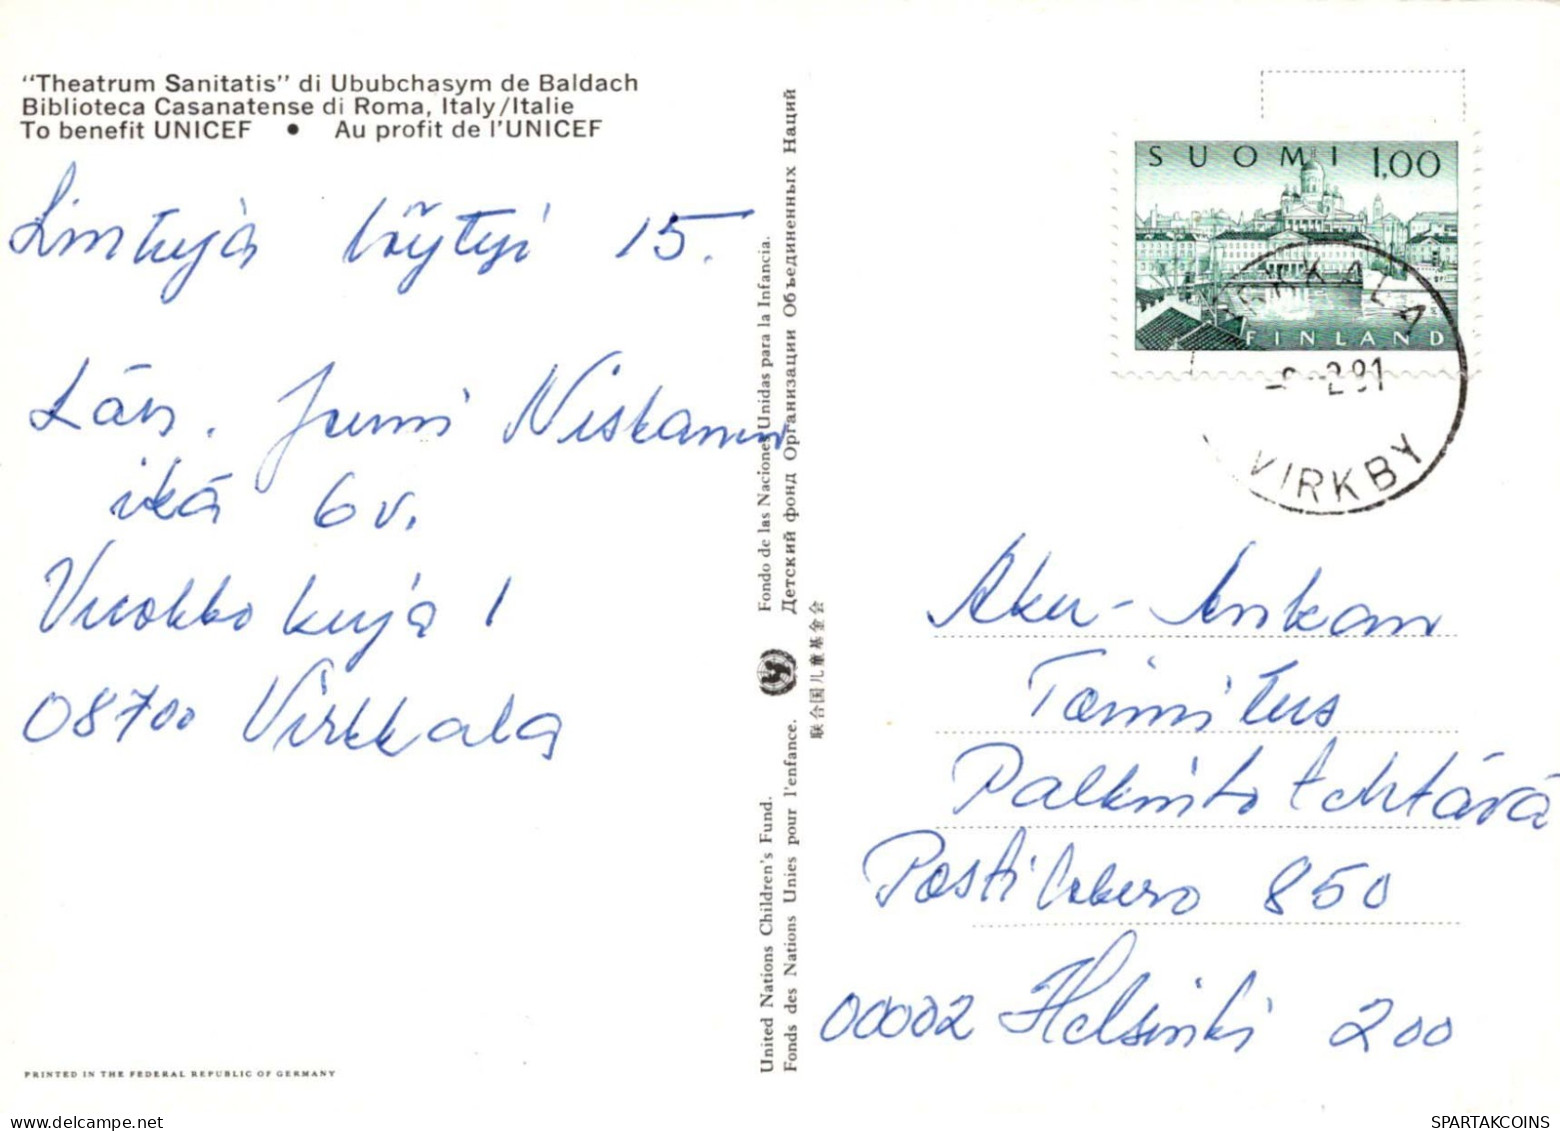 "Theatrum Sanitatis" di Ububchasym de Baldach
Biblioteca Casanatense di Roma, Italy/Italie
To benefit UNICEF • Au profit de l'UNICEF
Lintuja löytyi 15.
Läh. Jussi Niskanen
ikä 6 v.
Vuokkokuja 1
08700 Virkkala
PRINTED IN THE FEDERAL REPUBLIC OF GERMANY
United Nations Children's Fund. Fondo de las Naciones Unidas para la Infancia.
Fonds des Nations Unies pour l'enfance. Детский фонд Организации Объединенных Наций
联合国儿童基金会
SUOMI 1,00
FINLAND
VIRKKALA
2.91
VIRKBY
Aku-Ankan
Toimitus
Palkintotehtävä
Postilokero 850
00002 Helsinki 200
SPARTAKCOINS